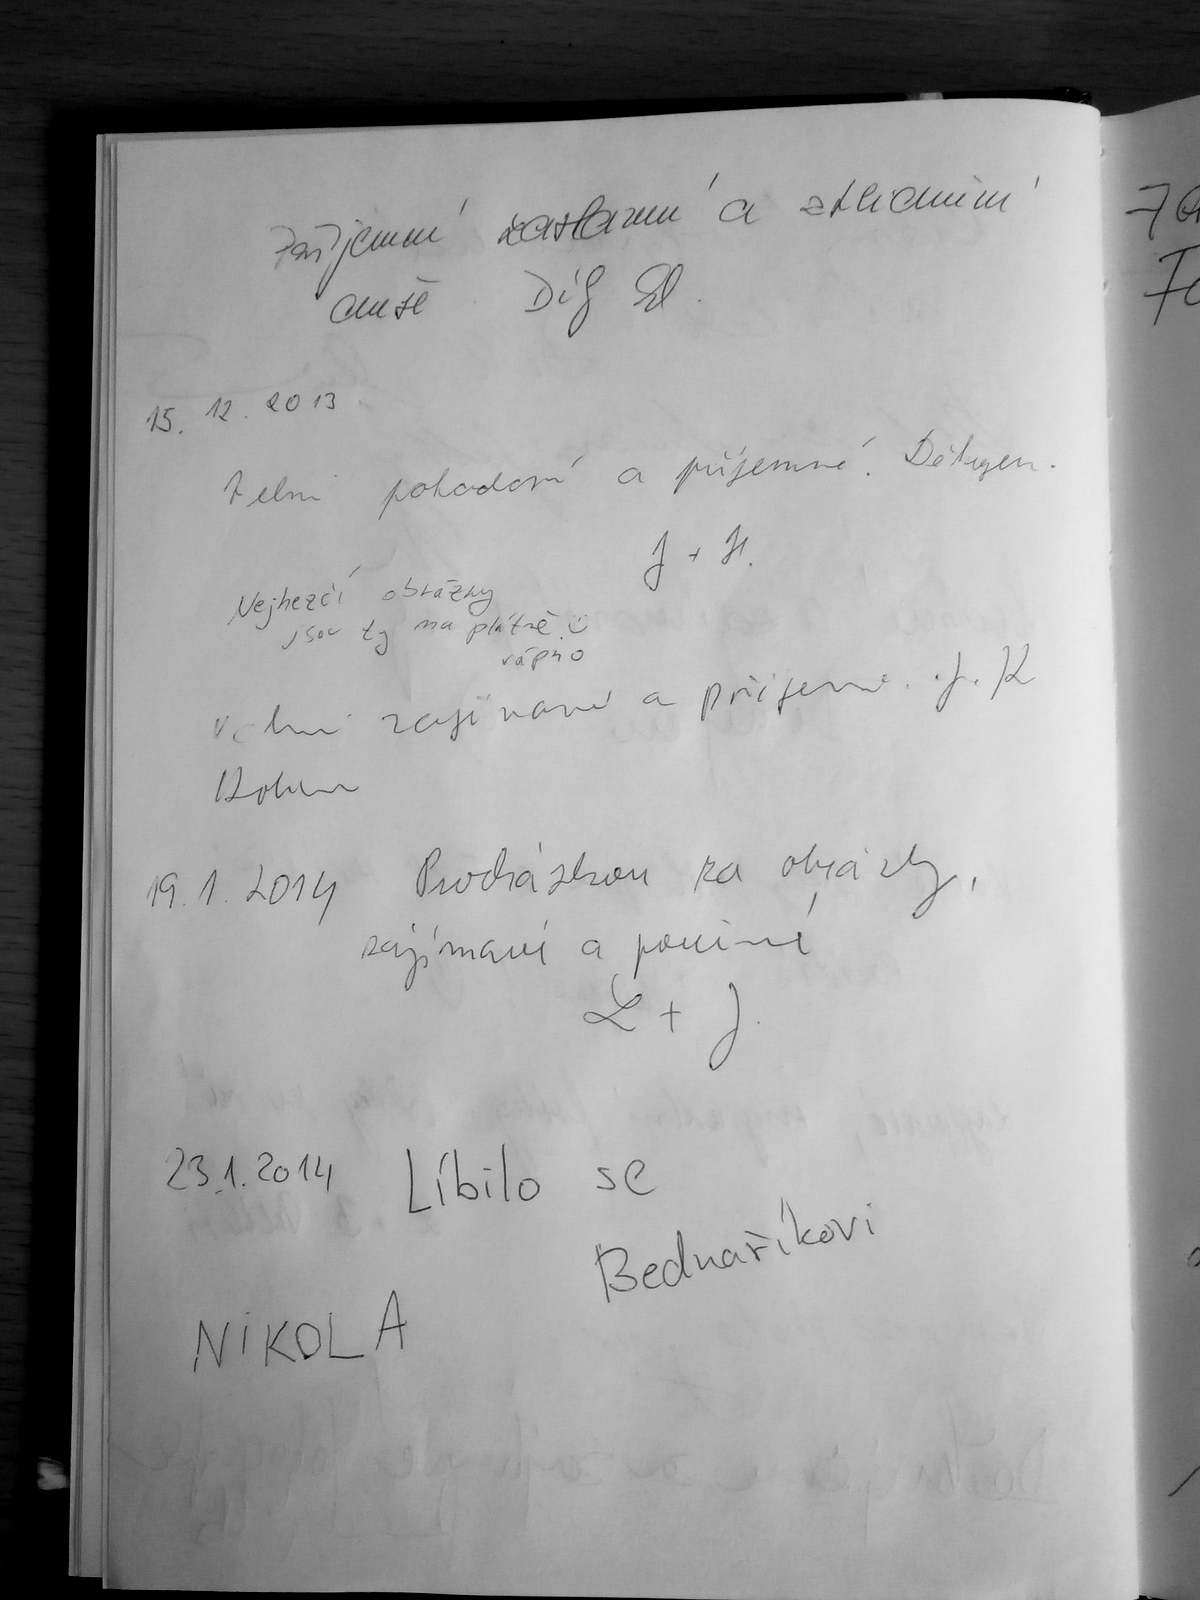 Příjemné zastavení a zklidnění
duše Dík
15. 12. 2013
Velmi pohodové a příjemné. Děkujem.
J + H.
Nejhezčí obrázky
jsou ty na plátně. ü
Velmi zajímavé a příjemné. J. K
19.1.2014 Procházkou za obrázky,
zajímavé a poučné
L + J.
23.1.2014 Líbilo se
Bednaříkovi
NIKOLA